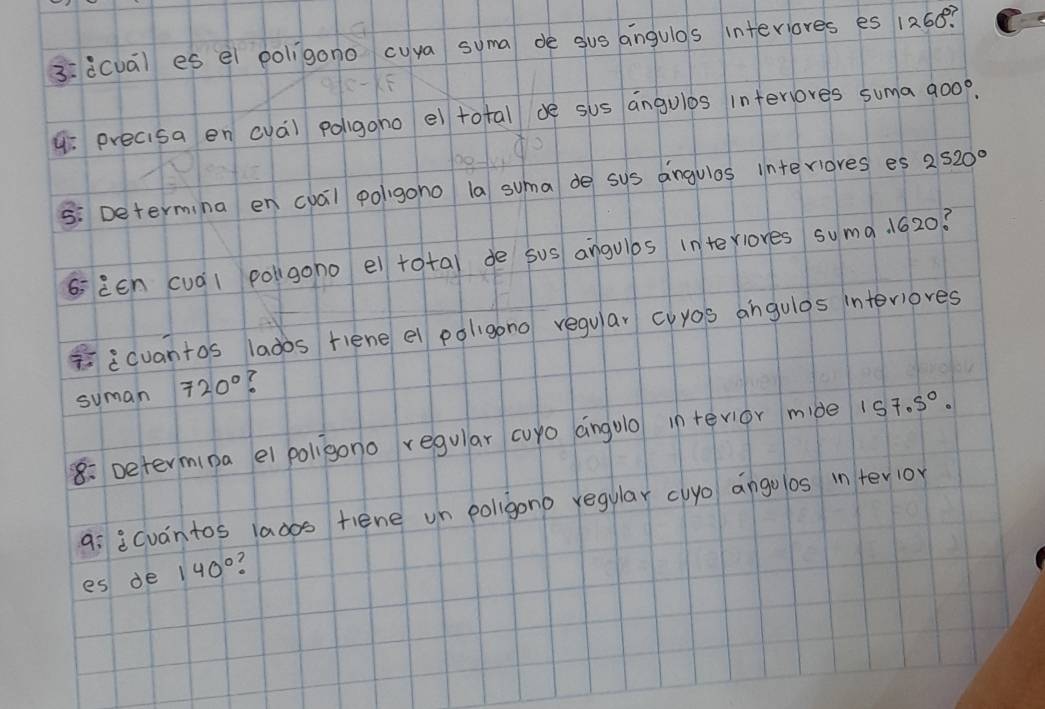 3= ¿cuál es el polígono cuya suma de sus ángulos interiores es 1260°?
4= precisa en cuál poligono el total de sus ángulos interiores suma 900°.
5= Determina en cuál poligono la suma de sus ángulos interiores es 2520°
6= ¿En cual poligono el total de sus ángulos interiores suma 1620?
7= ¿cuántos lados tiene el poligono regular cuyos ángulos interiores
suman 720°?
8= Determina el polígono regular cuyo ángulo interior mide 157.5°.
9= ¿cuántos lados tiene un polígono regular cuyo ángulos interior
es de 140°?